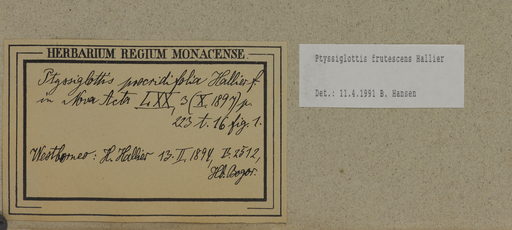 HERBARIUM REGIUM MONACENSE.
Ptyssiglottis psychotriifolia Hallier f.
in Nova Acta LXX, 3 (X. 1897) p.
223 t. 16 fig. 1.
Westborneo: H. Hallier 13. II. 1894, B. 2512,
Hb. Bogor.
Ptyssiglottis frutescens Hallier
Det.: 11.4.1991 B. Hansen